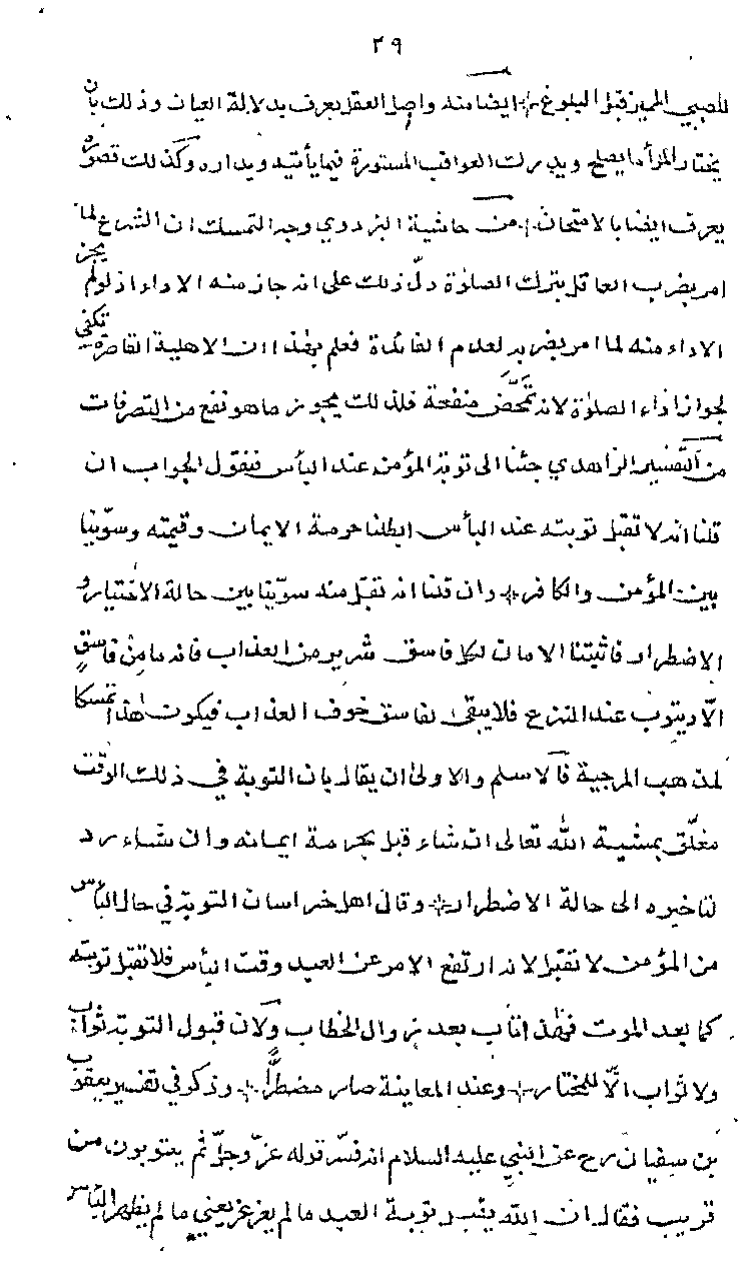 ٣٩
للصبي المميز قبل البلوغ ايضا منه واصل العقل يعرف بدلالة العيان وذلك بأن
يختار المرأ ما يصلح ويدرك العواقب المستورة فيما يأتيه ويداره وكذلك قصوره
يعرف ايضا بالامتحان من حاشية البزدوي وجه التمسك ان الشرع لما
امر بضرب العاقل بترك الصلوة دلّ ذلك على انه جاز منه الاداء اذ لو لم يجز
الاداء منه لما امر بضربه لعدم الفائدة فعلم بهذا ان الاهلية القاصرة تكفي
لجواز اداء الصلوة لانه تمحّض منفعة فلذلك يجوز ما هو نفع من التصرفات
من التفسير الزاهدي جئنا الى توبة المؤمن عند البأس فنقول الجواب ان
قلنا انه لا تقبل توبته عند البأس ابطلنا حرمة الايمان وقيمته وسوّينا
بين المؤمن والكافر وان قلنا انه تقبل منه سوّينا بين حالة الاختيار و
الاضطرار فاثبتنا الامان لكل فاسق شرير من العذاب فانه ما من فاسق
الّا ويتوب عند النزع فلا يبقى لفاسق خوف العذاب فيكون هذا تمسكا
لمذهب المرجية فالاسلم والاولى ان يقال بان التوبة في ذلك الوقت
معلّق بمشية الله تعالى ان شاء قبل بحرمة ايمانه وان شاء رد
لتاخيره الى حالة الاضطرار وقال اهل خراسان التوبة في حال البأس
من المؤمن لا تقبل لانه ارتفع الامر عن العبد وقت البأس فلا تقبل توبته
كما بعد الموت فهذا تاب بعد زوال الخطاب ولان قبول التوبة ثواب
ولا ثواب الّا للمختار وعند المعاينة صار مضطرًّا وذكر في تفسير يعقوب
بن سفيان رح عن النبي عليه السلام انه فسّر قوله عزّ وجلّ ثم يتوبون من
قريب فقال ان الله يقبل توبة العبد ما لم يغرغر يعني ما لم يظهر البأس